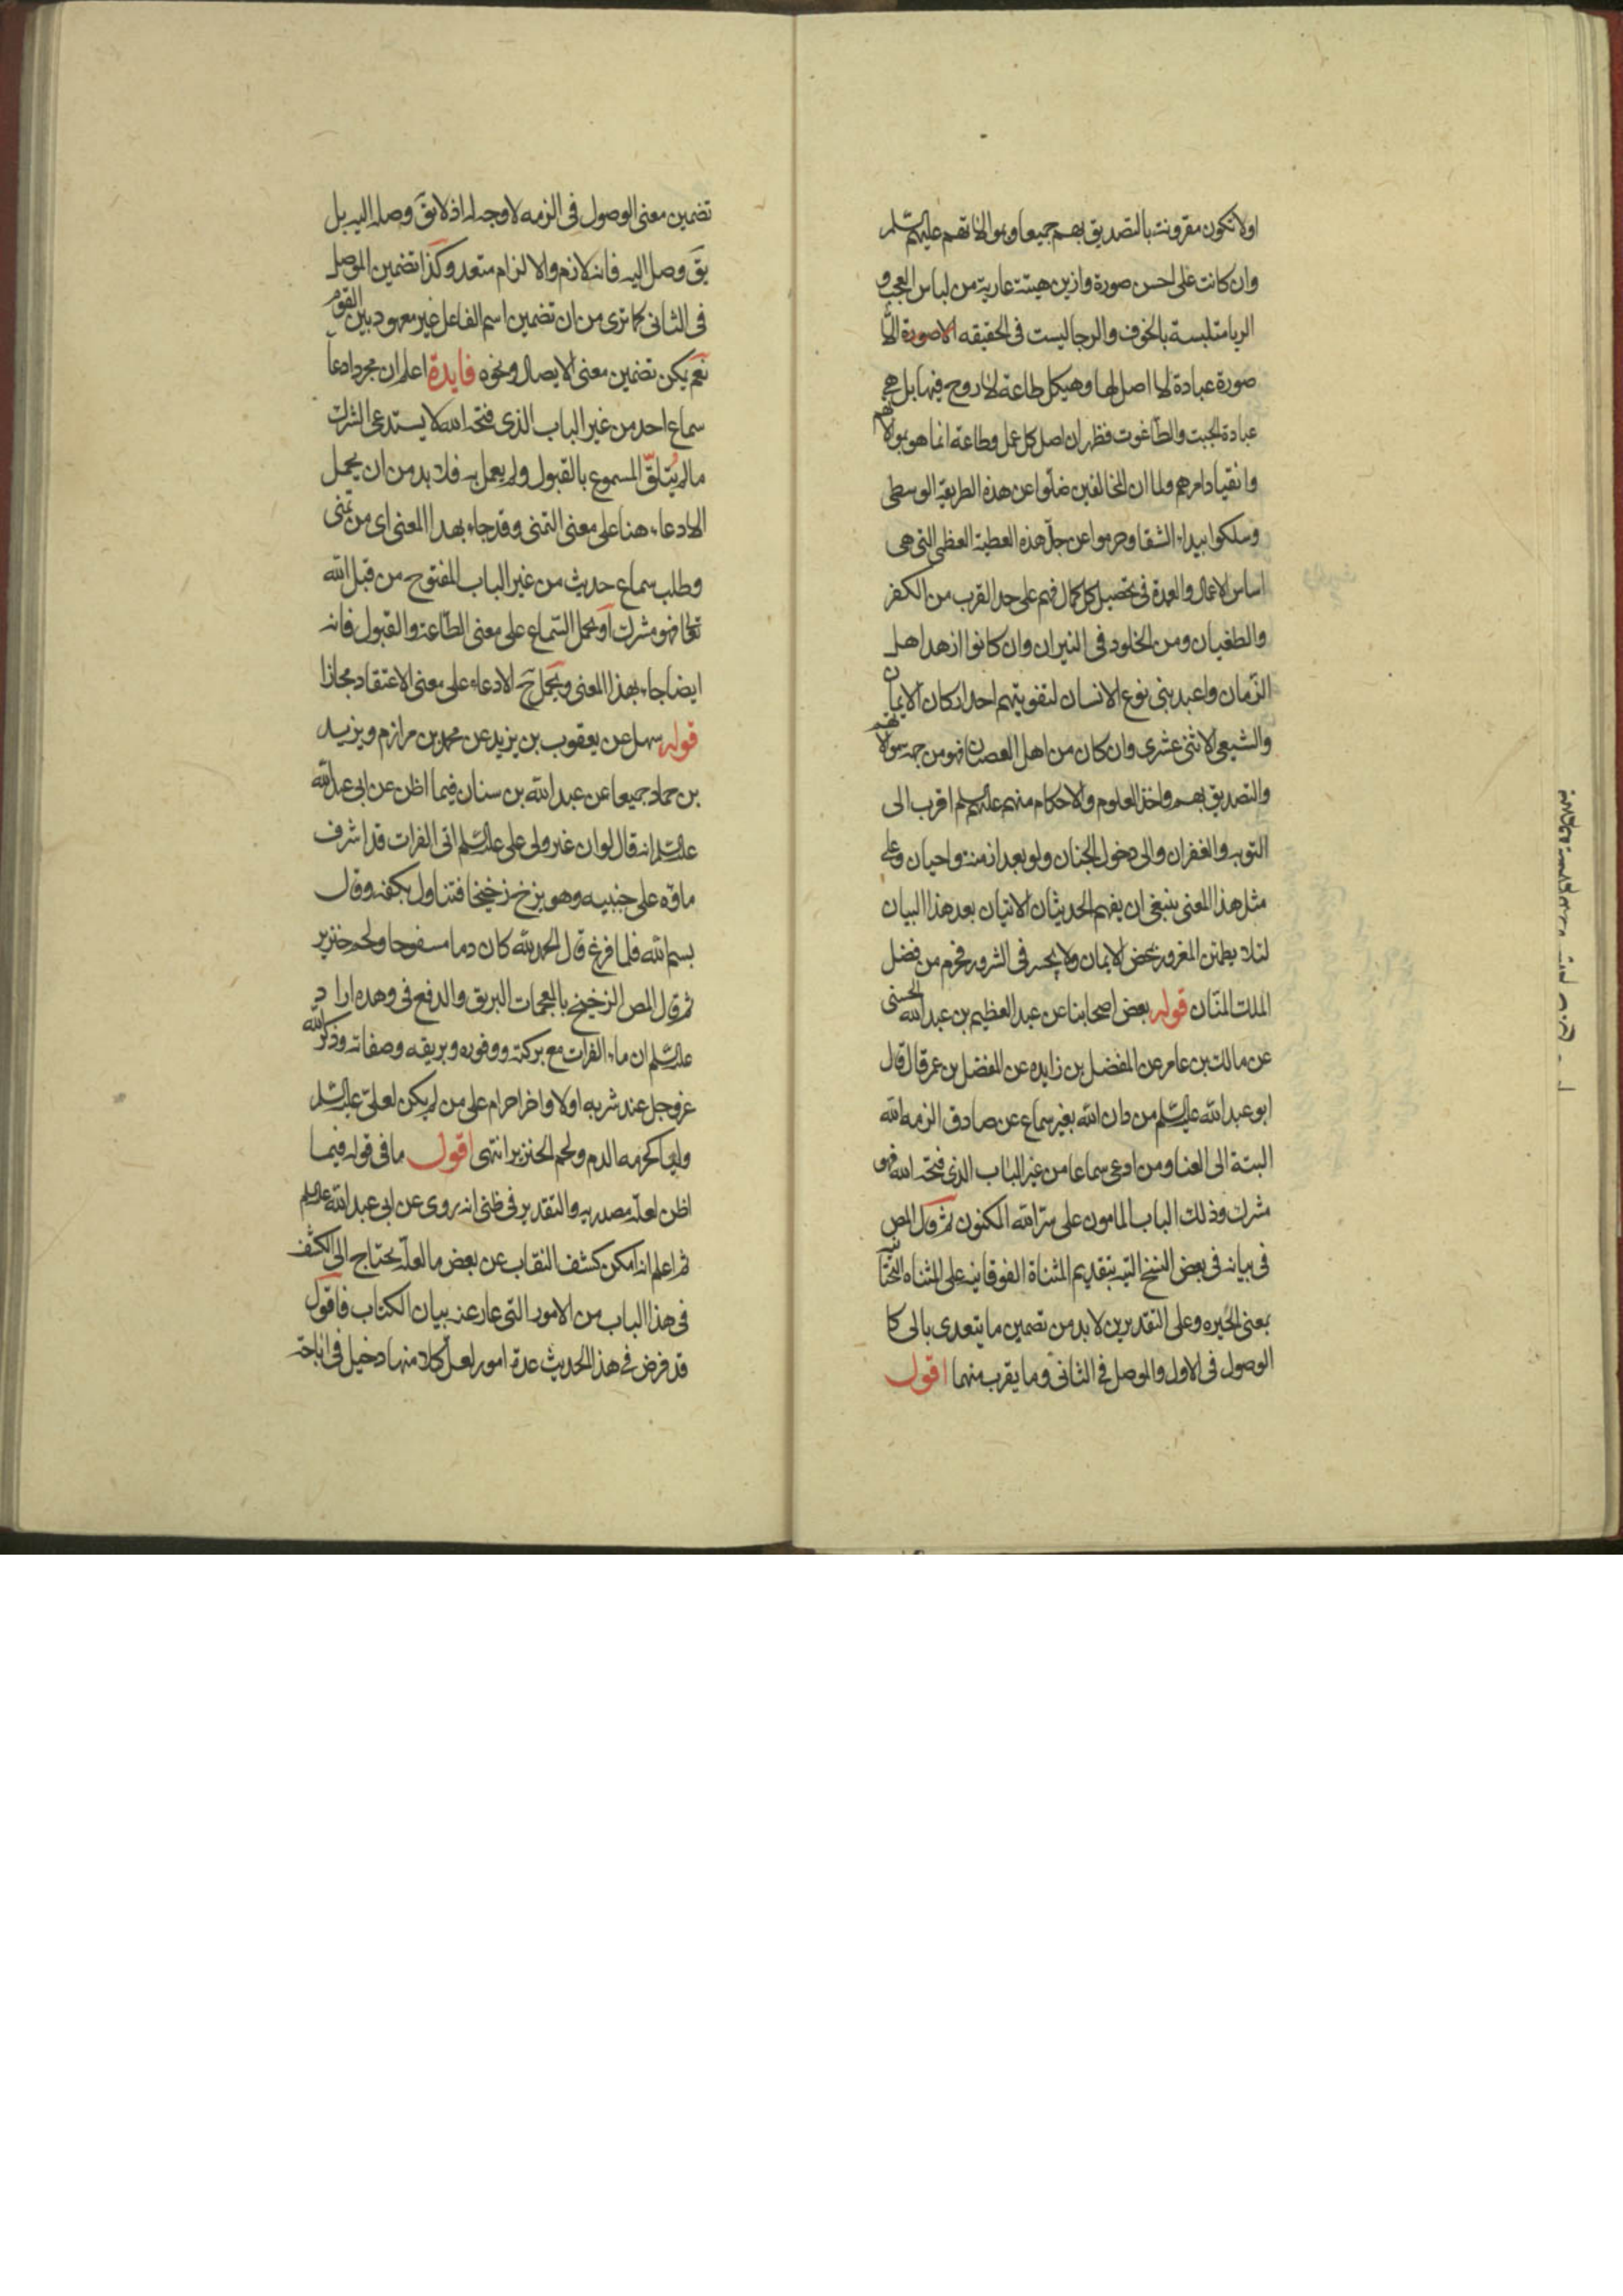 اولا تكون مقرونة بالتصديق بهم جميعا وبموالاتهم عليهم السلم
وان كانت على احسن صورة وازين هيئة عارية من لباس العجب و
الريا متلبسة بالخوف والرجا ليست فى الحقيقه الا صورة
صورة عبادة لا اصل لها وهيكل طاعة لا روح فيها بل هى
عبادة الجبت والطاغوت فظهر ان اصل كل عمل وطاعة انما هو بموالاتهم
وانقياد امرهم ولما ان المخالفين ضلوا عن هذه الطريقة الوسطى
وسلكوا بيداء الشقا وحرموا عن جل هذه العطية العظمى التى هى
اساس الاعمال والعمدة فى تحصيل كل كمال فهم على حد القرب من الكفر
والطغيان ومن الخلود فى النيران وان كانوا ازهد اهل
الزمان واعبد بنى نوع الانسان لتفويتهم احد اركان الايمان
والشيعى الاثنى عشرى وان كان من اهل العصيان فهو من جهة موالاتهم
والتصديق بهم واخذ العلوم والاحكام منهم عليهم السلم اقرب الى
التوبه والغفران والى دخول الجنان ولو بعد ازمنة واحيان وعلى
مثل هذا المعنى ينبغى ان يفهم الحديثان الاتيان بعد هذا البيان
لئلا يطمئن المغرور بمحض الايمان ولا يجسر فى الشرور فيحرم من فضل
الملك المنان قوله بعض اصحابنا عن عبد العظيم بن عبد الله الحسنى
عن مالك بن عامر عن المفضل بن زايده عن المفضل بن عمر قال قال
ابو عبد الله عليه السلم من دان الله بغير سماع عن صادق الزمه الله
البتة الى العنا ومن ادعى سماعا من غير الباب الذى فتحه الله فهو
مشرك وذلك الباب المامون على سر الله المكنون ثم قال المص
فى بيانه فى بعض النسخ التيه بتقديم المثناة الفوقانيه على المثناه التحتانيه
بمعنى الحيره وعلى التقديرين لا بد من تضمين ما يتعدى بالى كا
الوصول فى الاول والموصل فى الثانى وما يقرب منهما اقول
تضمين معنى الوصول فى الزمه لا وجه له اذ لا يق وصله اليه بل
يق وصل اليه فانه لازم والالزام متعد وكذا تضمين الموصل
فى الثانى كما ترى من ان تضمين اسم الفاعل غير معهود بين القوم
نعم يمكن تضمين معنى الايصال ونحوه فايدة اعلم ان مجرد ادعا
سماع احد من غير الباب الذى فتحه الله لا يستدعى الشرك
ما لم يتلق المسموع بالقبول ولم يعمل به فلا بد من ان يحمل
الادعاء هنا على معنى التمنى وقد جاء بهذا المعنى اى من تمنى
وطلب سماع حديث من غير الباب المفتوح من قبل الله
تعالى فهو مشرك او يحمل السماع على معنى الطاعة والقبول فانه
ايضا جاء بهذا المعنى ويحمل ح الادعاء على معنى الاعتقاد مجازا
قوله سهل عن يعقوب بن يزيد عن محمد بن مرازم ويزيد
بن حماد جميعا عن عبد الله بن سنان فيما اظن عن ابى عبد الله
عليه السلم انه قال لو ان غير ولى على عليه السلم اتى الفرات قد اشرف
ماؤه على جنبيه وهو يزخ زخيخا فتناول بكفه وقال
بسم الله فلما فرغ قال الحمد لله كان دما مسفوحا ولحم خنزير
ثم قال المص الزخيخ بالمعجمات البريق والدفع فى وهده اراد
عليه السلم ان ماء الفرات مع بركته ووفوره وبريقه وصفائه وذكر الله
عز وجل عند شربه اولا واخرا حرام على من لم يكن لعلى عليه السلم
وليا كحرمه الدم ولحم الخنزير انتهى اقول ما فى قوله فيما
اظن لعله مصدريه والتقدير فى ظنى انه روى عن ابى عبد الله عليه السلم
ثم اعلم انه امكن كشف النقاب عن بعض ما لعله يحتاج الى الكشف
فى هذا الباب من الامور التى عار عنه بيان الكتاب فاقول
قد فرض فى هذا الحديث عدة امور لعل كلا منها دخيل فى اباحة